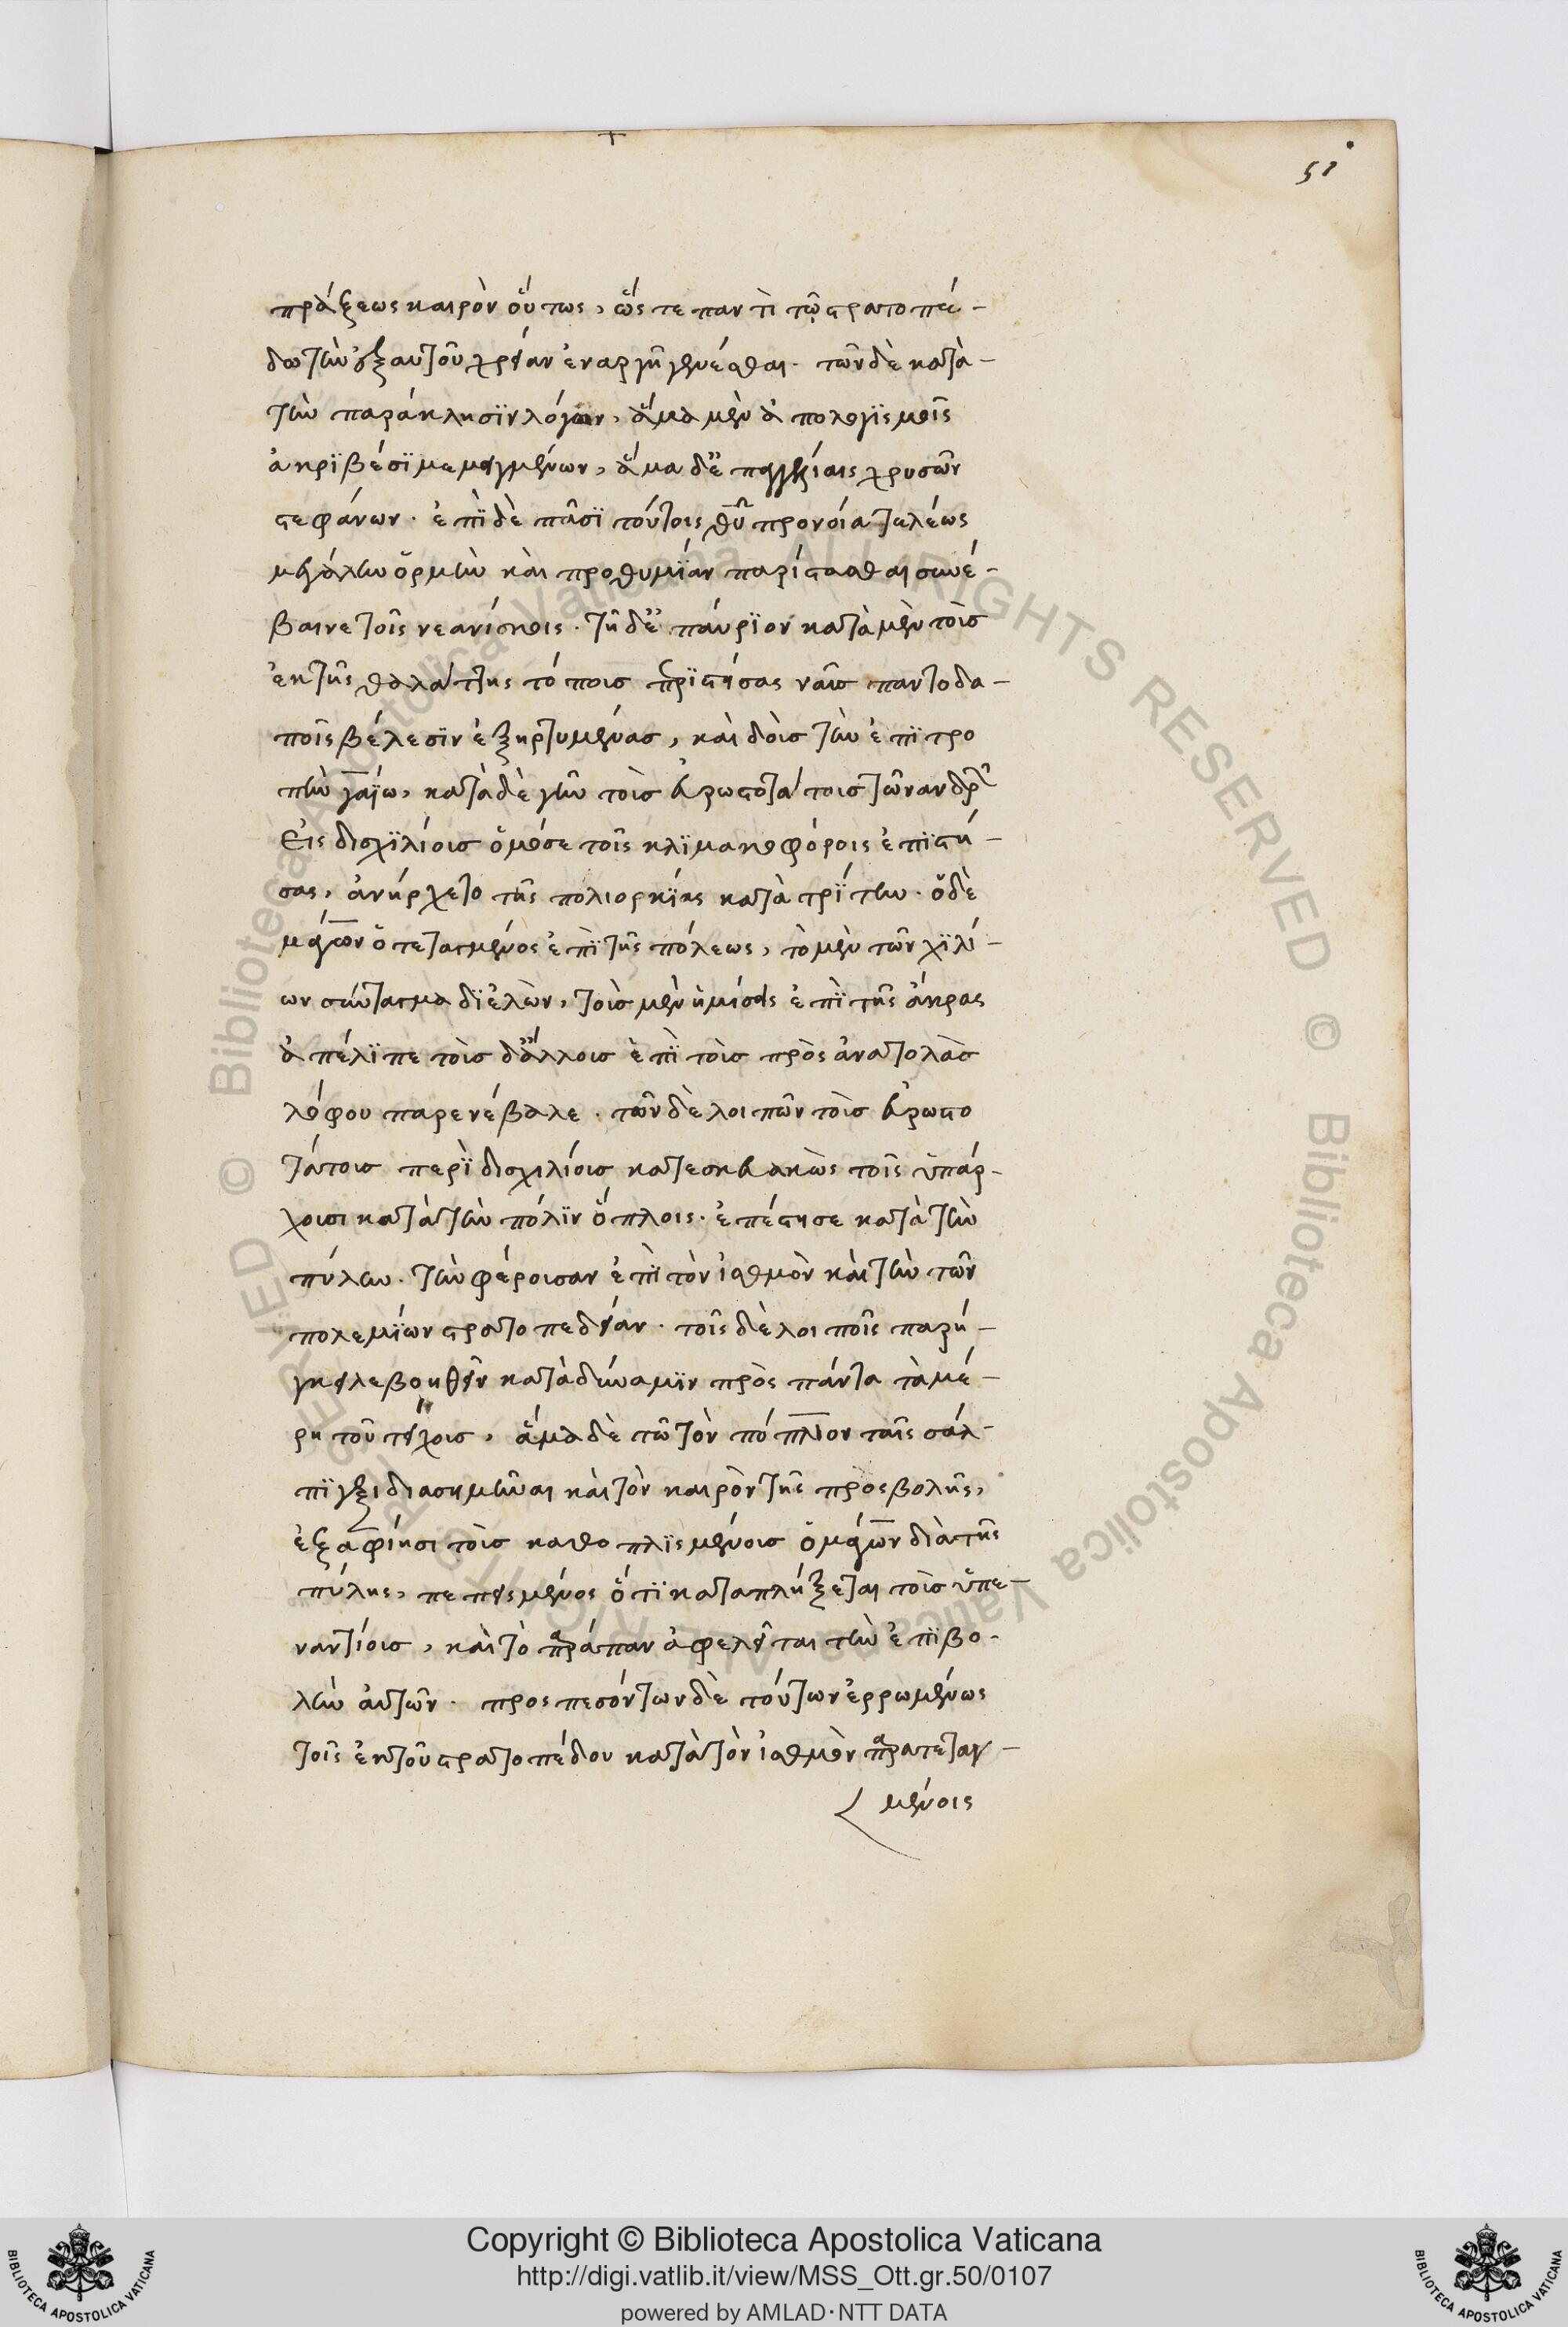 51
πράξεως καιρὸν οὕτως, ὥς τε παντὶ τῷ στρατοπέ-
δω τὴν ἐξ αυτοῦ χρείαν ἐναργῆ γενέσθαι. τῶν δὲ κατὰ-
τὴν παράκλησϊν λόγων, ἅμα μὲν ἀπολογϊσμοῖς
ἀκρϊβέσϊ μεμειγμένων, ἅμα δὲ παγγελίαις χρυσῶν
στεφάνων. ἐπὶ δὲ πᾶσϊ τούτοις θῦ προνοία τελέως
μεγάλην ὁρμὴν καὶ προθυμΐαν παρίστασθαι συνέ-
βαινε τοῖς νεανίσκοις. τῇ δὲ παύριον κατὰ μὲν τοὺσ
ἐκ τῆς θαλάττης τόπουσ πρϊστήσας ναῦσ παντοδα-
ποῖς βέλεσϊν ἐξηρτυμένασ, καὶ δοὺσ τὴν ἐπϊτρο
πὴν γαΐω, κατὰ δὲ γῆν τοὺσ εὐρωστοτάτουσ τῶν ανδρ
εἰς δισχϊλίουσ ὁμόσε τοῖς κλϊμακοφόροις ἐπϊστή-
σας, ἀνήρχετο τῆς πολιορκΐας κατὰ τρΐτην. ὁ δὲ
μάγων ὁ τεταγμένος ἐπὶ τῆς πόλεως, τὸ μὲν τῶν χϊλί-
ων σύνταγμα δϊελὼν, τοὺσ μὲν ἡμίσεις ἐπὶ τῆς ἄκρας
ἀπέλϊπε τοὺσ δ ἄλλουσ ἐπὶ τοὺσ πρὸς ἀνατολὰσ
λόφου παρενέβαλε. τῶν δὲ λοιπῶν τοὺσ εὐρωστο
τάτουσ περὶ δισχιλίουσ κατεσκευακὼς τοῖς ὑπάρ-
χουσι κατὰ τὴν πόλϊν ὅπλοις. ἐπέστησε κατὰ τὴν
πύλην. τὴν φέρουσαν ἐπὶ τὸν ἰσθμὸν καὶ τὴν τῶν
πολεμΐων στρατοπεδείαν. τοῖς δὲ λοιποῖς παρή-
γγειλε βοηθεῖν κατὰ δύναμϊν πρὸς πάντα τὰ μέ-
ρη τοῦ τείχουσ, ἅμα δὲ τῶ τὸν πόπλιον ταῖς σάλ-
πϊγξι διασημῆναι καὶ τὸν καιρὸν τῆς πρὸσβολῆς,
ἐξαφίησι τοὺσ καθοπλϊσμένουσ ὁ μάγων διὰ τῆς
πύλης, πεπεισμένος ὅτϊ καταπλήξεται τοὺσ ὑπε-
ναντίουσ, καὶ τὸ πράπαν ἀφελεῖται τὴν ἐπϊβο-
λὴν ἀυτῶν. προσπεσόντων δὲ τούτων ἐρρωμένως
τοῖς ἐκ τοῦ στρατοπέδου κατὰ τὸν ἰσθμὸν παρατεταγ-
μένοις
Copyright © Biblioteca Apostolica Vaticana
http://digi.vatlib.it/view/MSS_Ott.gr.50/0107
powered by AMLAD·NTT DATA
BIBLIOTECA APOSTOLICA VATICANA
BIBLIOTECA APOSTOLICA VATICANA